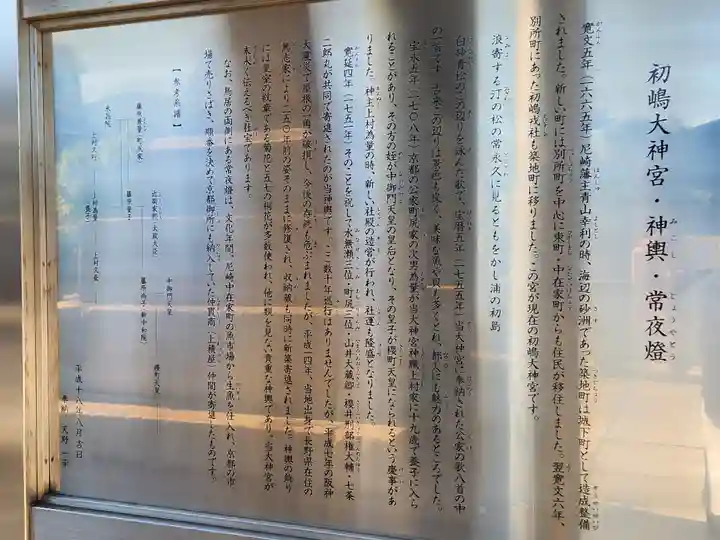 初嶋大神宮・神輿・常夜燈
寛文五年(一六六五年)尼崎藩主青山幸利の時、海辺の砂洲であった築地町は城下町として造成整備
されました。新しい町には別所町を中心に東町・中在家町からも住民が移住しました。翌寛文六年、
別所町にあった初嶋戎社も築地町に移りました。この宮が現在の初嶋大神宮です。
浪寄する汀の松の常永久に見るともをかし浦の初島
白砂青松のこの辺りを詠んだ歌で、宝暦五年(一七五五年)当大神宮に奉納された公家の歌八首の中
の一首です。古来この辺りは景色も良く、美味な魚や貝も多くとれ、都人にも魅力のあるところでした。
宝永五年(一七〇八年)京都の公家町尻家の次男為量が当大神宮神職上村家に十九歳で養子に入ら
れることがあり、その方の姪が中御門天皇の皇后となり、その皇子が櫻町天皇になられるという慶事があ
りました。神主上村為量の時、新しい社殿の造営が行われ、社運も隆盛となりました。
寛延四年(一七五一年)そのことを祝して水無瀬三位・町尻三位・山井大蔵卿・櫻井刑部権大輔・七条
二郎丸が共同で寄進されたのが当神輿です。ここ数十年巡行はありませんでしたが、平成七年の阪神
大震災で屋根の一角が破損し、今後の存続も危ぶまれましたが、平成一四年、当地出身で長野県在住の
無名家により二五〇年前の姿そのままに修復され、収納蔵も同時に新築寄進されました。神輿の飾り
には皇室の紋章である菊花と五七の桐花が多数使われ、他に類を見ない貴重な神輿であり、当大神宮が
末永く伝えるべき社宝であります。
なお、鳥居の両側にある常夜燈は、文化年間、尼崎・中在家町の魚市場から生魚を仕入れ、京都の市
場で売りさばき、順番を決めて京都御所にも納入していた仲買商(上積屋)仲間が寄進したものです。
【参考系譜】
平成十八年八月吉日
奉納 天野